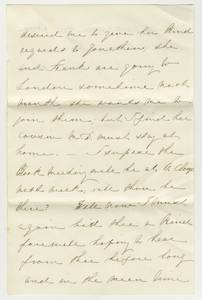 desired me to give her kind
regards to Jonathan, she
and Frank are going to
London sometime next
month she wants me to
join them, but I find her
cousin M.D. must stay at
home. — I suppose the
Week Meeting will be at
next week, will thou be
there? Till now I must
again bid thee a kind
farewell hoping to hear
from thee before long
and in the mean time